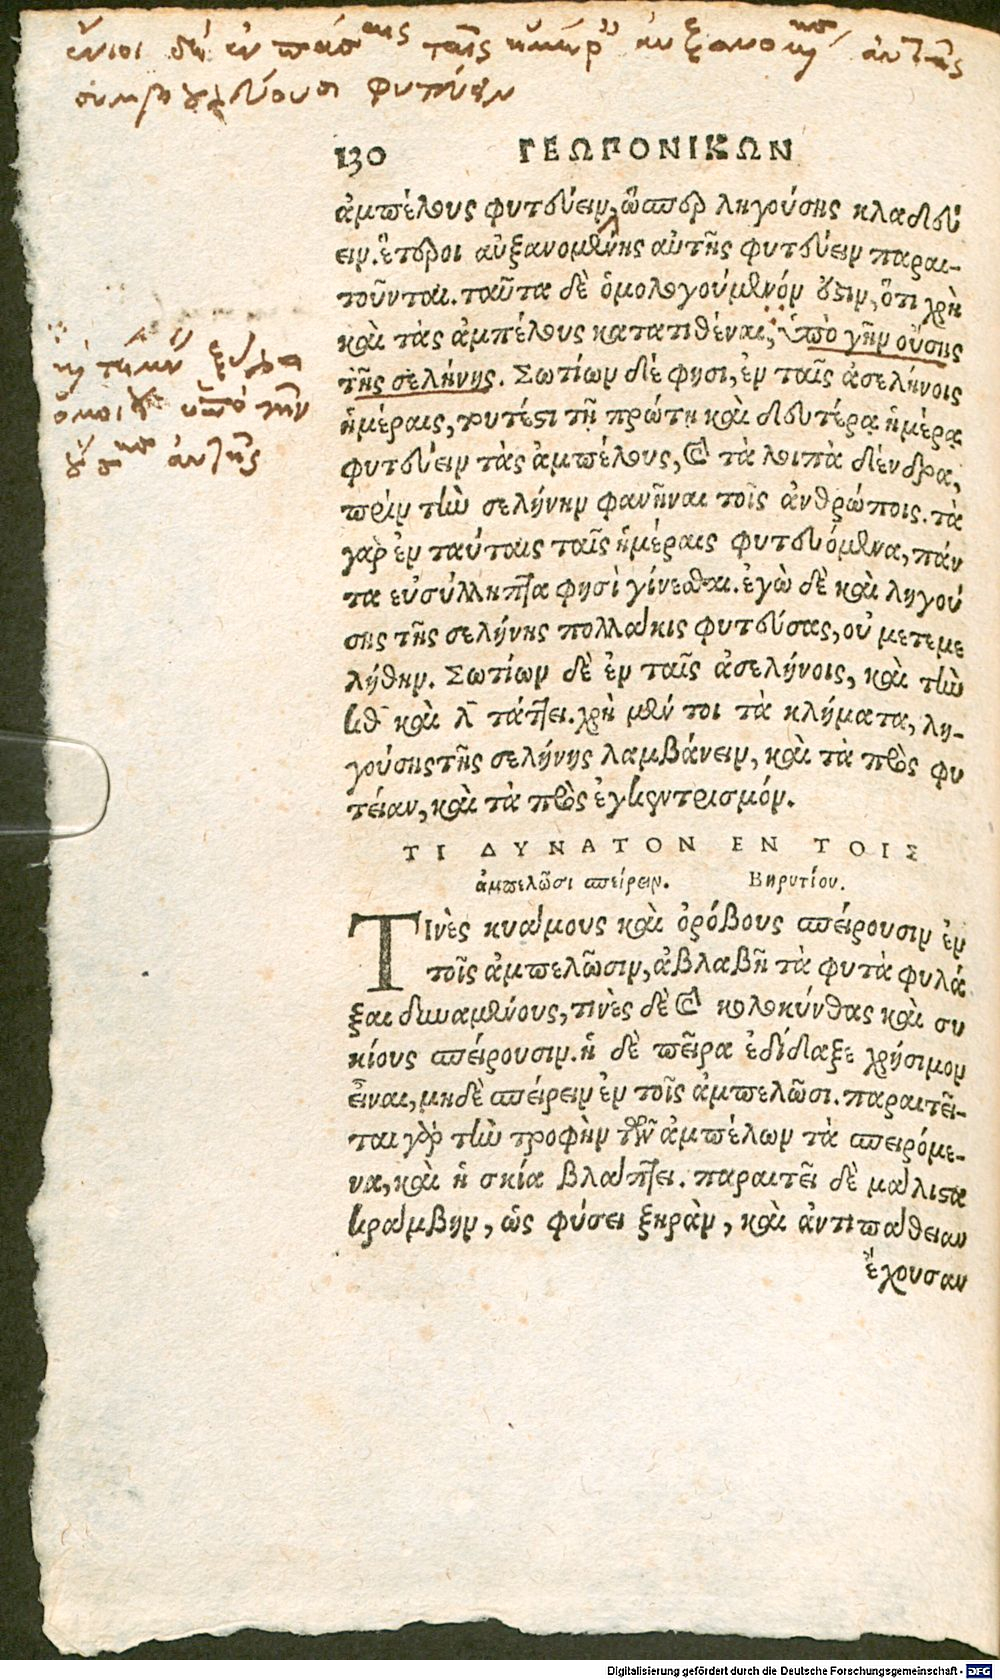 ἔνιοι δὲ ἐν πάσαις ταῖς ἡμέραις αὐξανομένης αὐτῆς
συμβουλεύουσι φυτεύειν
130 ΓΕΩΠΟΝΙΚΩΝ
ἀμπέλους φυτεύειν, ὥσπερ ληγούσης κλαδεύ
ειν. ἕτεροι αὐξανομένης αὐτῆς φυτεύειν παραι-
τοῦνται. ταῦτα δὲ ὁμολογούμενόν ἐστιν, ὅτι χρὴ
καὶ τὰς ἀμπέλους κατατιθέναι, ὑπὸ γῆν οὔσης
τῆς σελήνης. Σωτίων δέ φησι, ἐν ταῖς ἀσελήνοις
ἡμέραις, τουτέστι τῇ πρώτῃ καὶ δευτέρᾳ ἡμέρᾳ
φυτεύειν τὰς ἀμπέλους, καὶ τὰ λοιπὰ δένδρα,
πρὶν τὴν σελήνην φανῆναι τοῖς ἀνθρώποις. τὰ
γὰρ ἐν ταύταις ταῖς ἡμέραις φυτευόμενα, πάν
τα εὐσύλληπτα φησὶ γίνεσθαι. ἐγὼ δὲ καὶ ληγού
σης τῆς σελήνης πολλάκις φυτεύσας, οὐ μετεμε
λήθην. Σωτίων δὲ ἐν ταῖς ἀσελήνοις, καὶ τὴν
κθ καὶ λ τάττει. χρὴ μέν τοι τὰ κλήματα, λη-
γούσης τῆς σελήνης λαμβάνειν, καὶ τὰ πρὸς φυ
τείαν, καὶ τὰ πρὸς ἐγκεντρισμόν.
ΤΙ ΔΥΝΑΤΟΝ ΕΝ ΤΟΙΣ
ἀμπελῶσι σπείρειν. Βηρυτίου.
ΤΙνὲς κυάμους καὶ ὀρόβους σπείρουσιν ἐν
τοῖς ἀμπελῶσιν, ἀβλαβῆ τὰ φυτὰ φυλά
ξαι δυναμένους, τινὲς δὲ καὶ κολοκύνθας καὶ συ
κίους σπείρουσιν. ἡ δὲ πεῖρα ἐδίδαξε χρήσιμον
εἶναι, μηδὲ σπείρειν ἐν τοῖς ἀμπελῶσι. παραιτεῖ-
ται γὰρ τὴν τροφὴν τῶν ἀμπέλων τὰ σπειρόμε-
να, καὶ ἡ σκία βλάπτει. παραιτεῖ δὲ μάλιστα
κράμβην, ὡς φύσει ξηρὰν, καὶ ἀντιπάθειαν
ἔχουσαν
ὁμοίως ὑπὸ τὴν
αὐτῆς
Digitalisierung gefördert durch die Deutsche Forschungsgemeinschaft - DFG